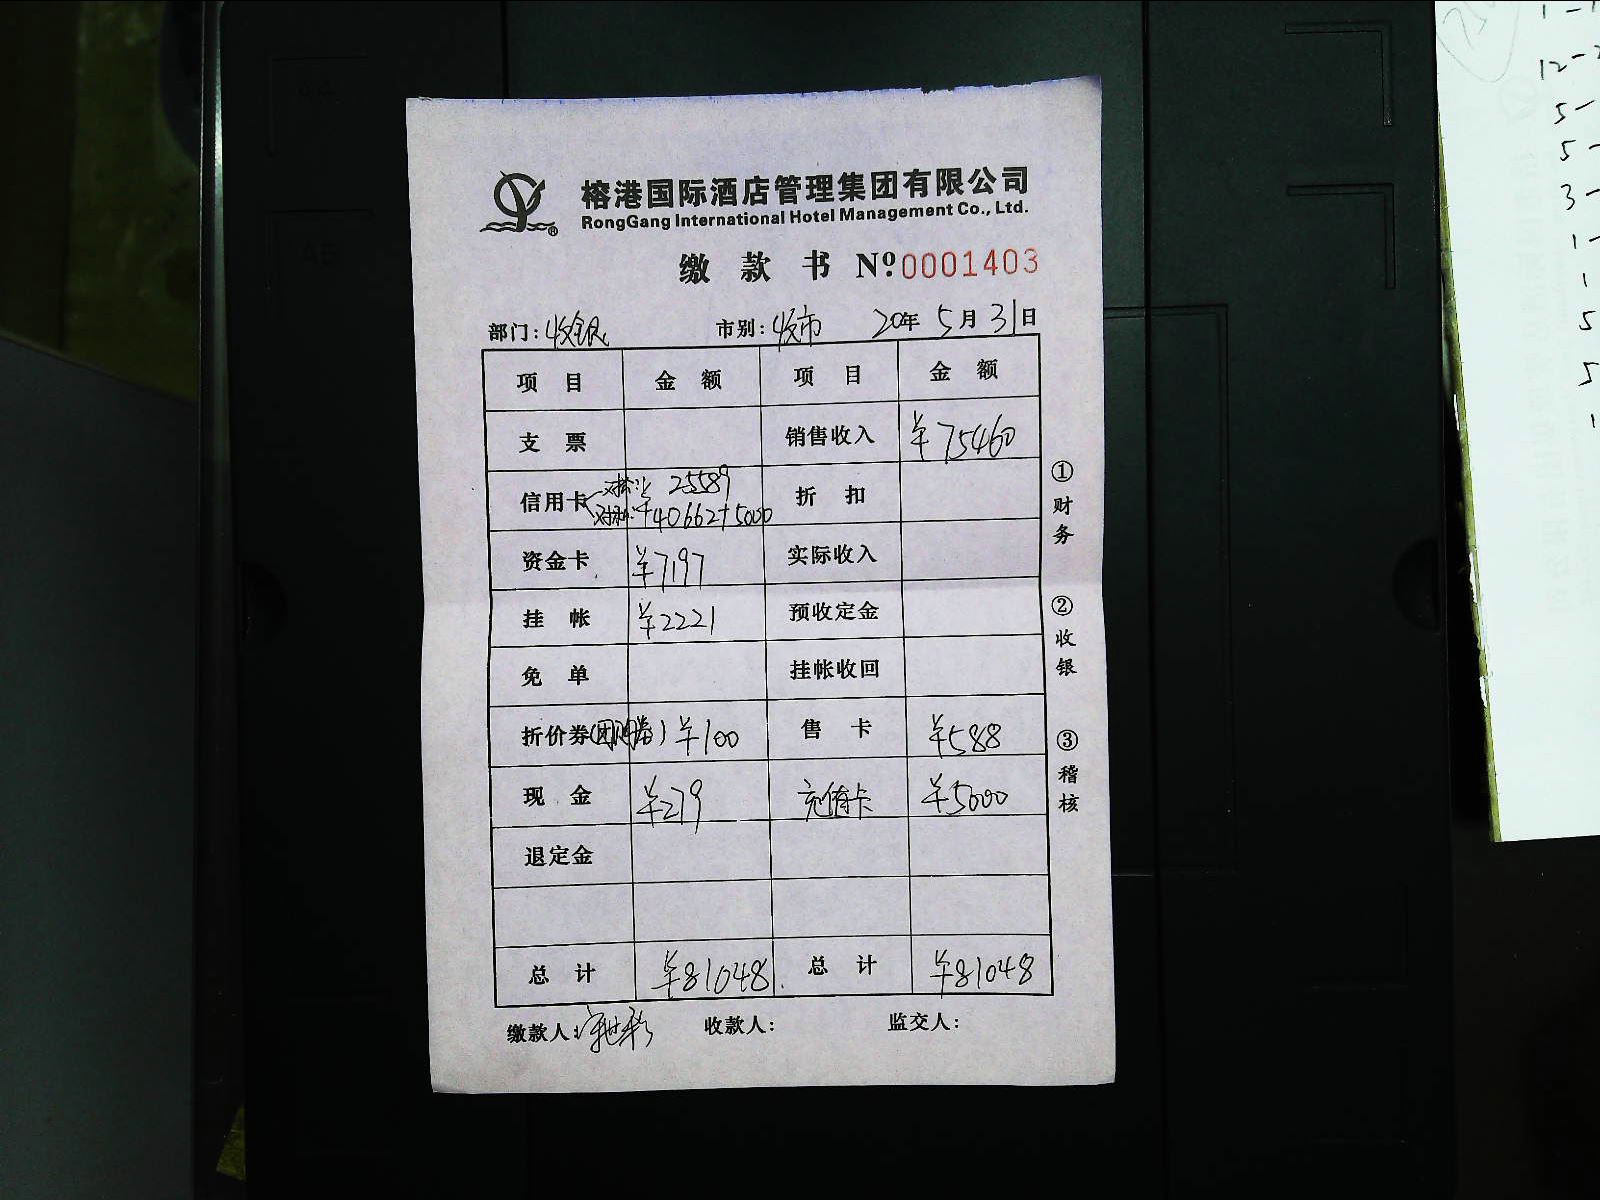 榕港国际酒店管理集团有限公司
RongGang International Hotel Management Co., Ltd.
®
缴 款 书 Nº 0001403
部门：收银 市别：收市 20年 5月 31日
项 目 金 额 项 目 金 额
支 票 销售收入 ¥75460
信用卡 25589 折 扣
¥40662+5000
资金卡 ¥7197 实际收入
挂 帐 ¥2221 预收定金
免 单 挂帐收回
折价券(团购券) ¥100 售 卡 ¥588
现 金 ¥279 充值卡 ¥5000
退定金
总 计 ¥81048 总 计 ¥81048
缴款人： 收款人： 监交人：
①财务
②收银
③稽核
12-
5-
5-
3-
1-
1
5
5
1